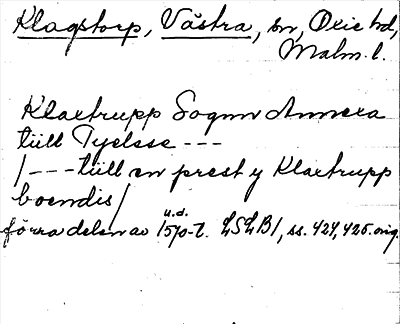 Klagstorp, Västra, sn, Oxie hd,
Malm. l.
Klaxtrupp Sognn Annexa
tüll Tyelsse ---
/--- tüll en prest y Klaxtrupp
boendis/
u.d.
förra delen av 1570-t. LSLB1, ss. 424, 425. orig.